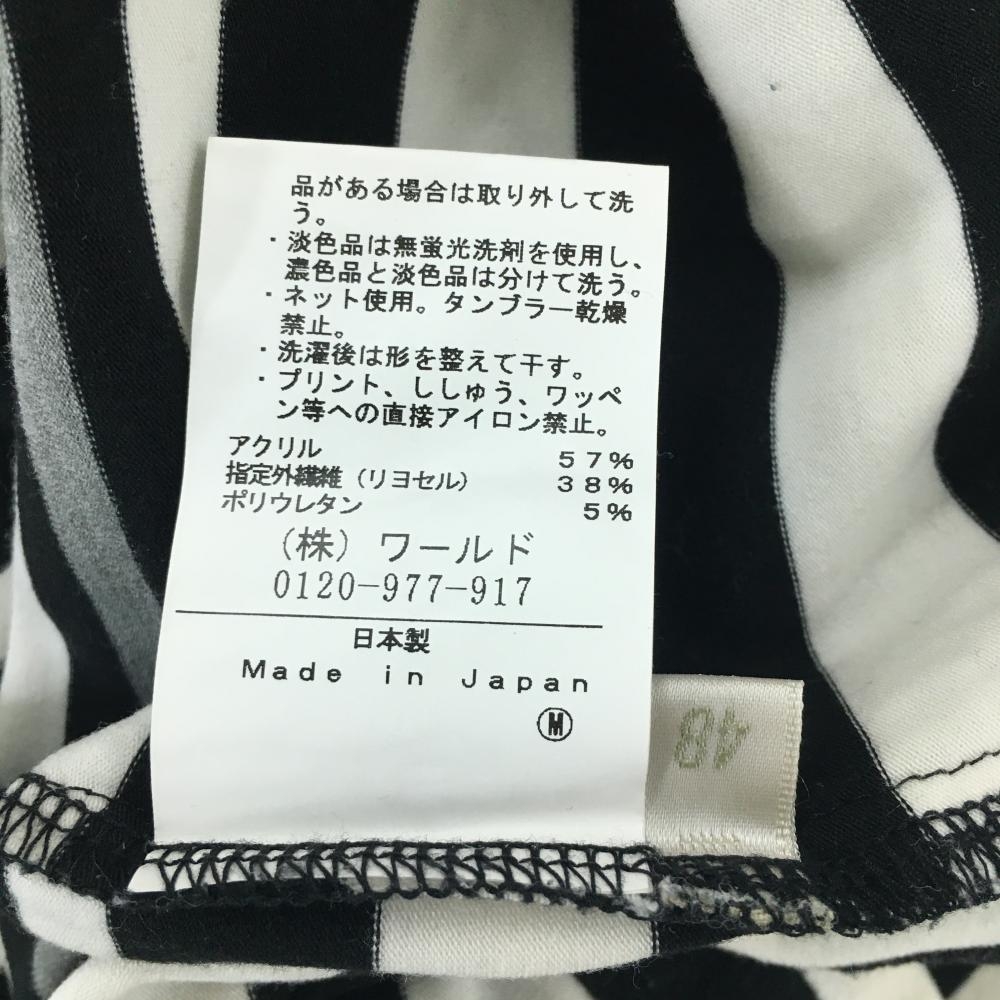 品がある場合は取り外して洗
う。
・淡色品は無蛍光洗剤を使用し、
濃色品と淡色品は分けて洗う。
・ネット使用。タンブラー乾燥
禁止。
・洗濯後は形を整えて干す。
・プリント、ししゅう、ワッペ
ン等への直接アイロン禁止。
アクリル 57%
指定外繊維（リヨセル） 38%
ポリウレタン 5%
（株）ワールド
0120-977-917
日本製
Made in Japan
M
48